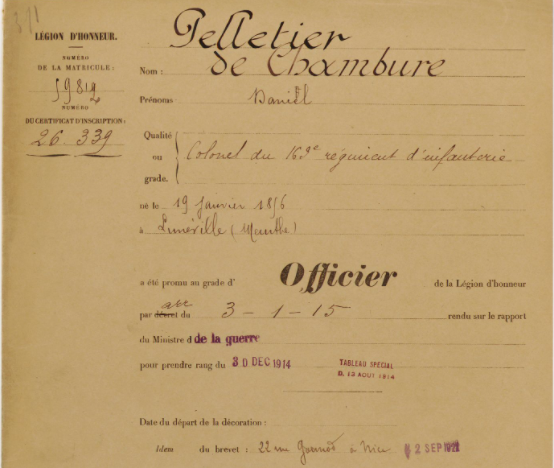 LÉGION D'HONNEUR.
NUMÉRO
DE LA MATRICULE :
59812
NUMÉRO
DU CERTIFICAT D'INSCRIPTION :
26.339
Pelletier
Nom : de Chambure
Prénoms Daniel
Qualité
ou Colonel du 163e régiment d'infanterie
grade.
né le 19 Janvier 1856
à Lunéville (Meurthe)
a été promu au grade d' Officier de la Légion d'honneur
par décret du 3-1-15 rendu sur le rapport
du Ministre d de la guerre
pour prendre rang du 30 DEC 1914 TABLEAU SPECIAL
D. 13 AOUT 1914
Date du départ de la décoration :
Idem du brevet : 22 rue à Nice 2 SEP